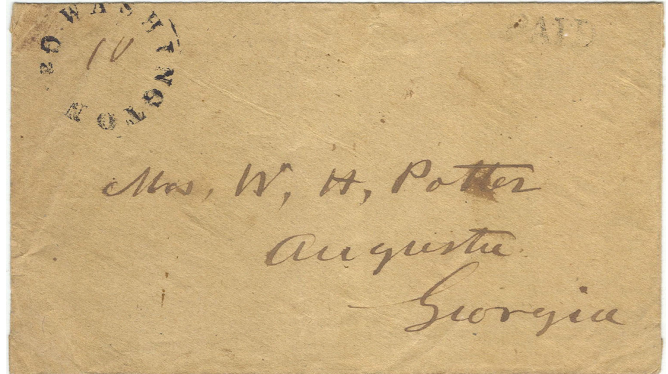 WASHINGTON Ga.
10
PAID
Mrs. W, H, Potter
Augusta
Georgia